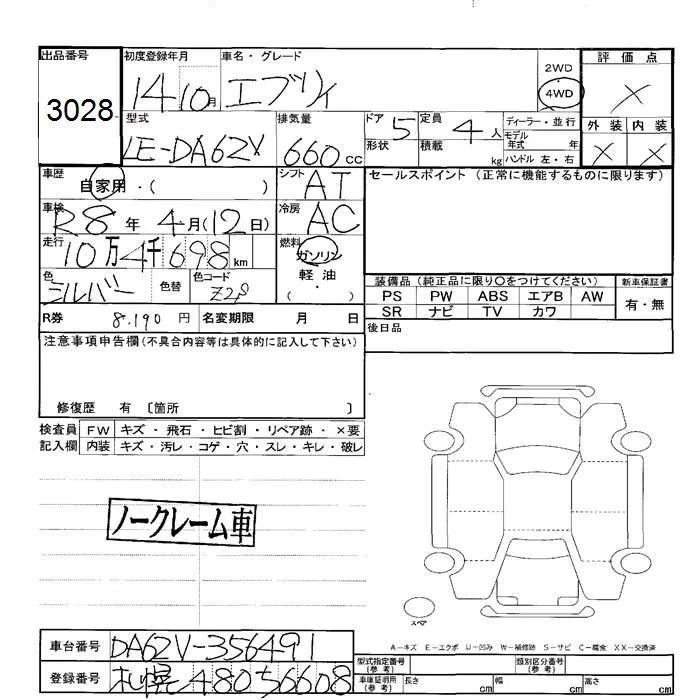 出品番号 初度登録年月 車名・グレード
3028 14 10月 エブリィ 2WD 4WD
評価点
×
型式 排気量 ドア 5 定員 4人 ディーラー・並行
LE-DA62V 660cc 形状 積載 kg モデル年式 年
ハンドル 左・右
外装 内装
× ×
車歴 自家用・( ) シフト AT
セールスポイント (正常に機能するものに限ります)
車検 R8年 4月(12日) 冷房 AC
走行 10万4千698km 燃料 ガソリン
軽油
( )
色 シルバー 色替 色コード Z2S
装備品 (純正品に限り○をつけてください) 新車保証書
PS PW ABS エアB AW 有・無
SR ナビ TV カワ
R券 8.190円 名変期限 月 日
後日品
注意事項申告欄(不具合内容等は具体的に記入して下さい)
修復歴 有 〔箇所 〕
検査員 FW キズ・飛石・ヒビ割・リペア跡・×要
記入欄 内装 キズ・汚レ・コゲ・穴・スレ・キレ・破レ
ノークレーム車
スペア
A-キズ E-エクボ U-凹み W-補修跡 S-サビ C-腐食 XX-交換済
車台番号 DA62V-356491
登録番号 札幌48056608
型式指定番号(参考) 類別区分番号(参考)
車庫証明用(参考) 長さ cm 幅 cm 高さ cm